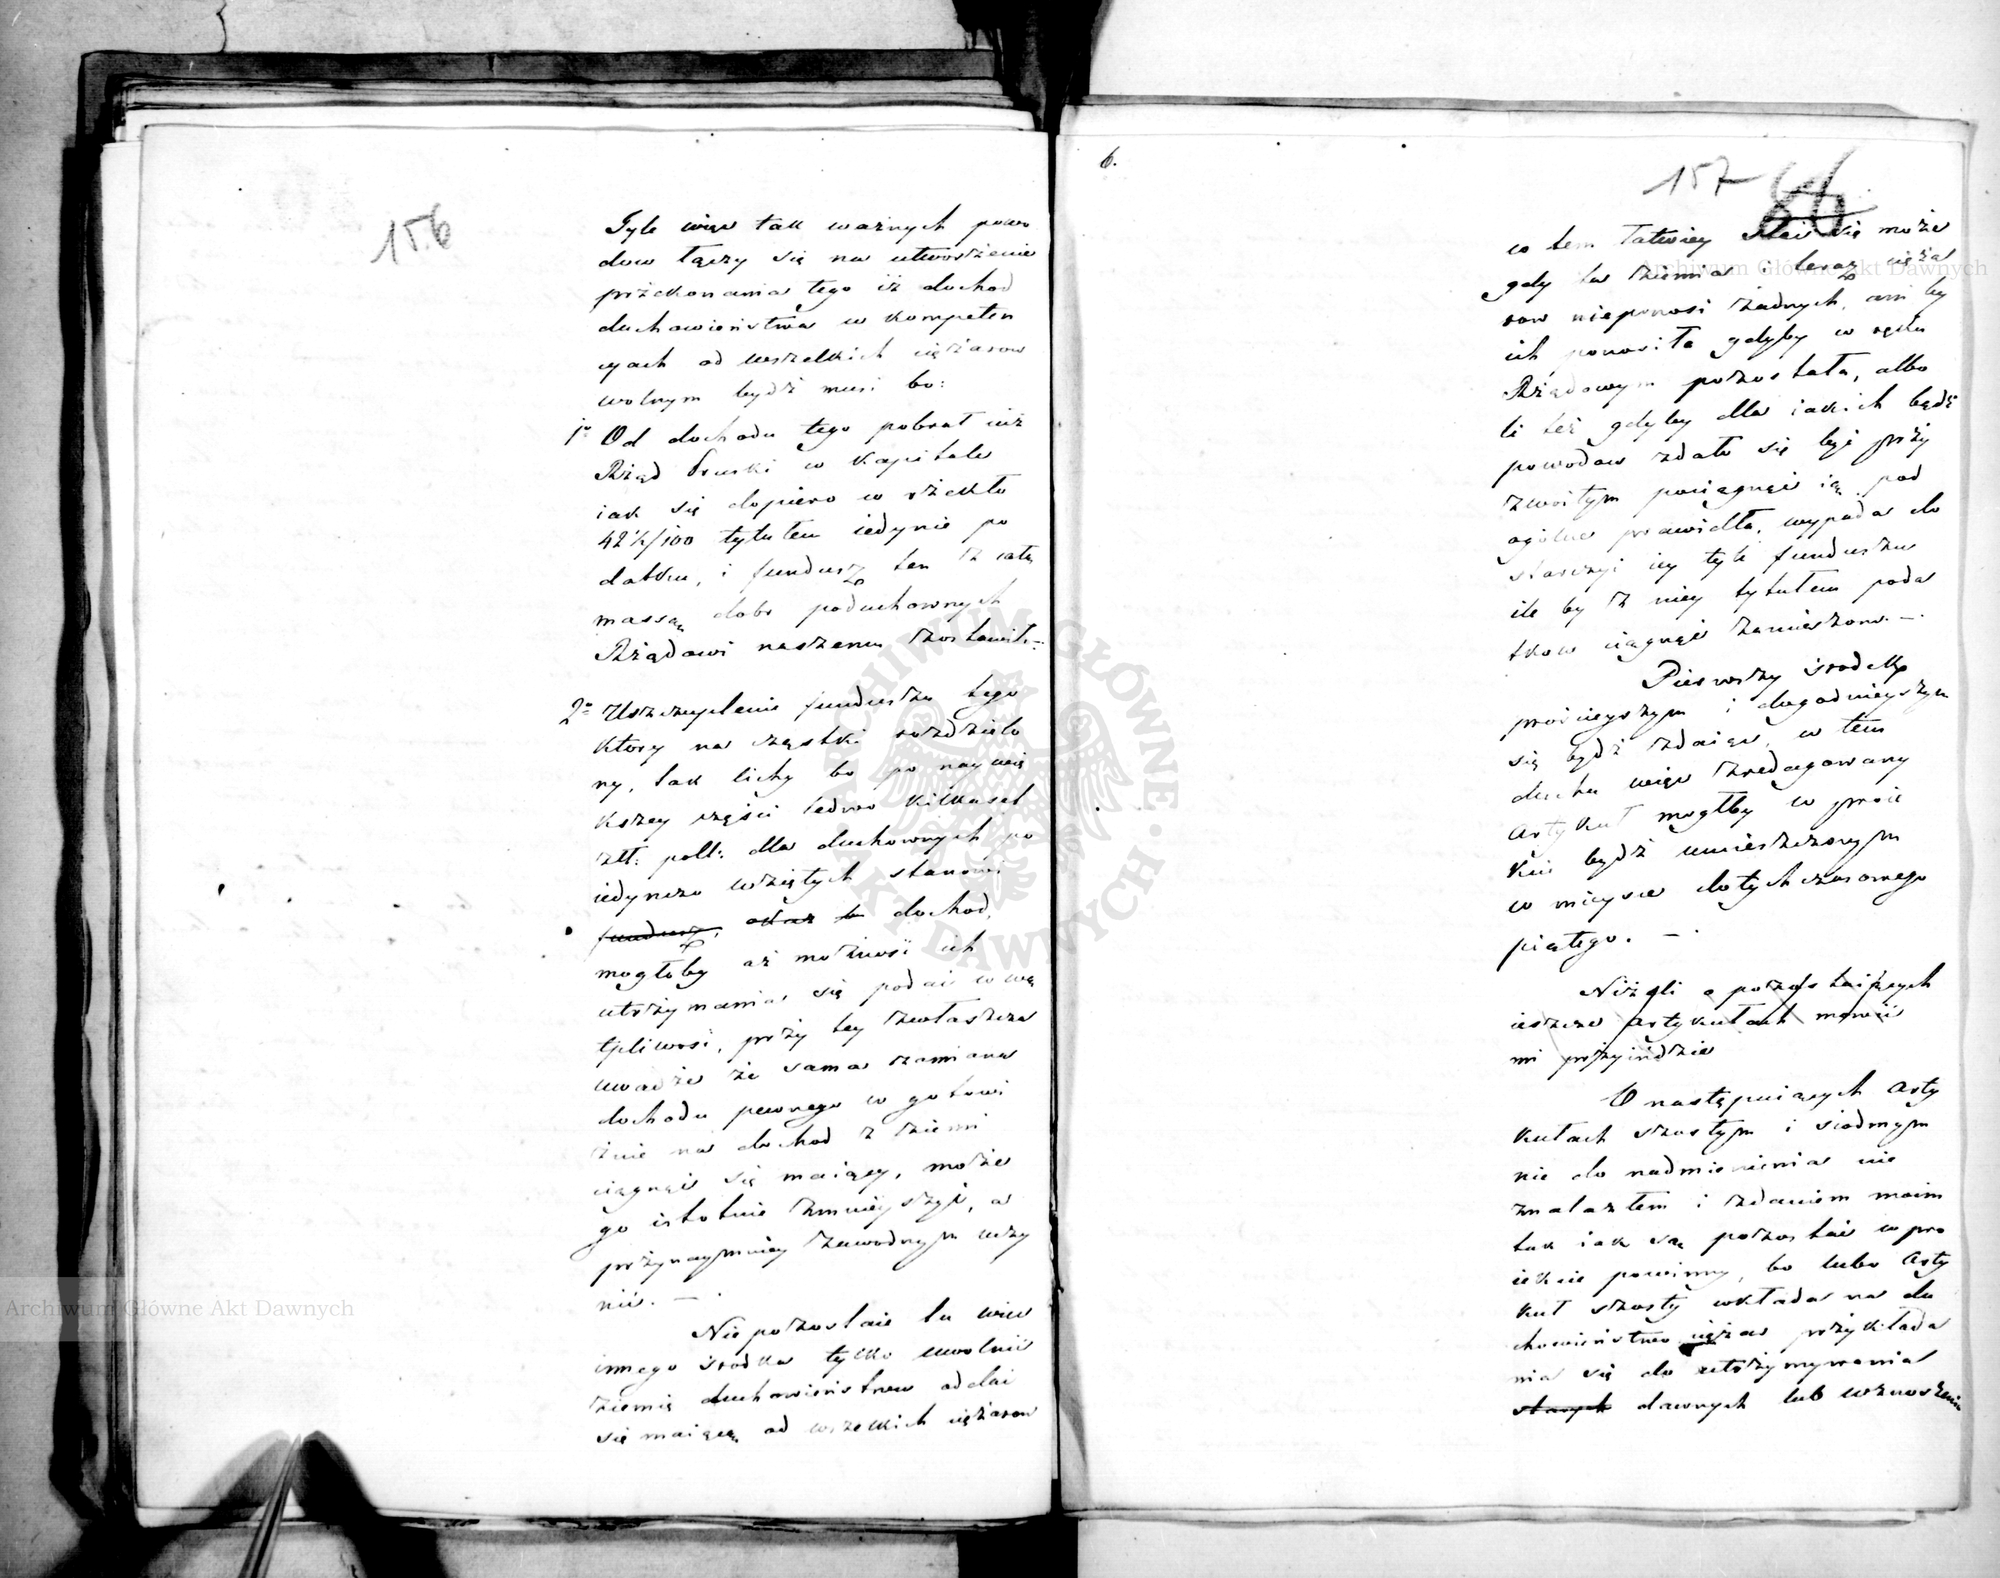 156
Tyle więc tak ważnych powo
dow łączy się na utworzenie
przekonania tego iż dochod
duchowieństwa w kompeten
cyach od wszelkich ciężarow
wolnym bydź musi bo:
1o Od dochodu tego pobrał iuż
Rząd Pruski w kapitale
iak się dopiero w rzekło
42½/100 tytułem iedynie po
datku, i fundusz ten z całą
massą dobr poduchownych
Rządowi naszemu zostawił.-
2o Uszczuplenie funduszu tego
ktory na cząstki rozdzielo
ny, tak lichy bo po naywię
kszey części ledwo kilkaset
złt: poll: dla duchownych po
iedynczo wziętych stanowi
fundusz, oraz to dochod,
mogłoby aż możność ich
utrzymania się podać w wą
tpliwość, przy tey zwłaszcza
uwadze że sama zamiana
dochodu pewnego w gotowi
źnie na dochod z ziemi
ciągnąć się maiący, może
go istotnie zmnieyszyć, a
przynaymniey zawodnym uczy
nić. -
Nie pozostaie tu więc
innego środka tylko uwolnić
ziemię duchowieństwu oddać
się maiącą od wszelkich ciężarow
6.
157
86
co tem łatwiey stać się może
gdy ta ziemia i teraz cięża
row nieponosi żadnych, ani by
ich ponosiła gdyby w ręku
Rządowym pozostała, albo
li też gdyby dla iakich bądź
powodow zdało się być przy
zwoitym pociągnąć ią pod
ogolne prawidła, wypada do
starczyć iey tyle funduszu
ile by z niey tytułem poda
tkow ciągnąć zamierzono. -
Pierwszy środek
prościeyszym i dogodnieyszym
się bydź zdaiąc, w tem
duchu więc zredagowany
Artykuł mogłby w proie
kcie bydź umieszczonym
w mieysce dotychczasowego
piątego. -
Niżeli o pozostaiących
ieszcze Artykułach mowić
mi przyidzie
O następuiących Arty
kułach szostym i siodmym
nic do nadmienienia nie
znalazłem i zdaniem moim
tak iak są pozostać w pro
iekcie powinny, bo lubo Arty
kuł szosty wkłada na du
chowieństwo ciężar przykłada
nia się do utrzymywania
starych dawnych lub wznoszenia
Archiwum Główne Akt Dawnych
Archiwum Główne Akt Dawnych
ARCHIWUM GŁÓWNE AKT DAWNYCH